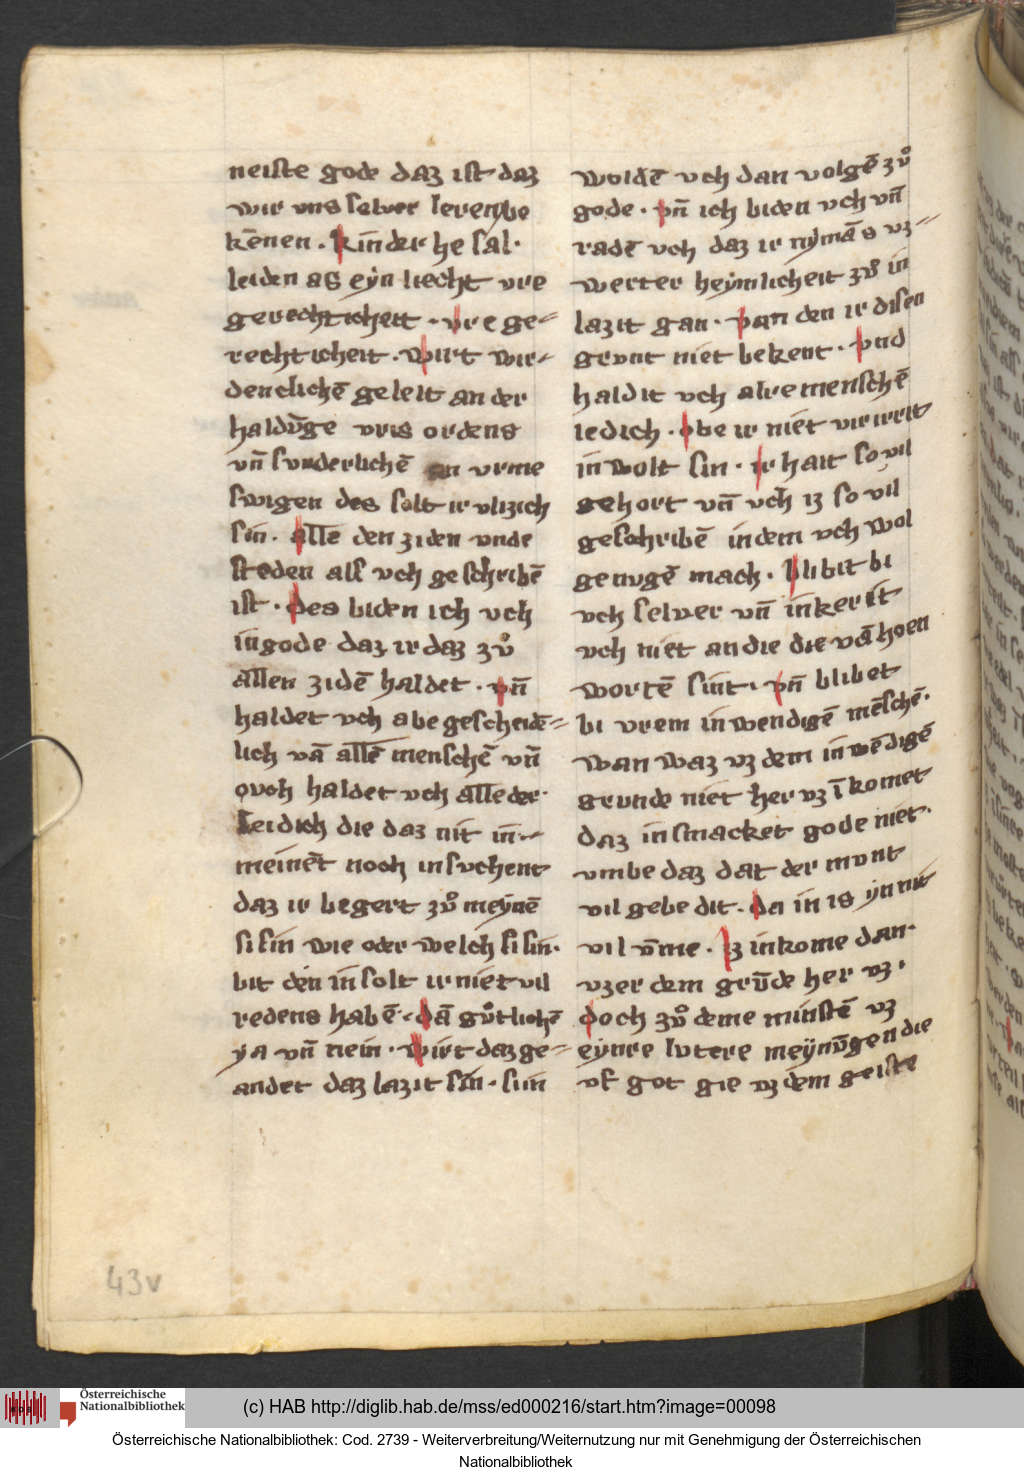 neiste gode daz ist daz
wir vns selwer lerenbe
kēnen · kin der he sal·
leiden as eyn liecht vre
gerechticheit · vre ge=
rechticheit · wirt wir=
denclichē geleit an der
haldv̄ge vris ordens
vn̄ svnderlichē an vrme
swigen des solt ir vlizich
sin · allē den ziden vnde
steden als vch geschribē
ist · des biden ich vch
in gode daz ir daz zvͦ
allen zidē haldet · vn̄
haldet vch abe gescheidē=
lich vā allē menschē vn̄
ovch haldet vch alle der·
leidich die daz nit in=
meinēt noch in svchent
daz ir begert zvͦ meynē
si sin wie oder welch si sin·
bit den in solt ir niet vil
redens habē · dā gvͦtlichē
ya vn̄ nein · wirt daz ge=
andet daz lazit sin · sun
woldē vch dan volgē zvͦ
gode · vn̄ ich biden vch vn̄
radē vch daz ir nymās vz=
werter heymlicheit zvͦ in
lazit gan · van den ir disen
grvnt niet bekent · vnd
haldit vch alre menschē
ledich · obe ir niet vir irrit
in wolt sin · ir hait so vil
gehort vn̄ vch iz so vil
geschribē in dem vch wol
genvgē mach · blibit bi
vch selver vn̄ inkerit
vch niet an die die vā hoen
wortē sint · vn̄ blibet
bi vrem inwendigē mēschē·
wan waz vz dem inwēdigē
grvnde niet her vz īkomet
daz insmacket gode niet·
vmbe daz dat der mvnt
vil gebe dit · da in is ynnit
vil v̄me · iz inkome dan·
vzer dem grv̄de her vz ·
doch zvͦ deme minstē vz
eynre lvtere meynv̄gen die
vf got gie vz dem geiste
43v
Österreichische
Nationalbibliothek
(c) HAB http://diglib.hab.de/mss/ed000216/start.htm?image=00098
Österreichische Nationalbibliothek: Cod. 2739 - Weiterverbreitung/Weiternutzung nur mit Genehmigung der Österreichischen
Nationalbibliothek